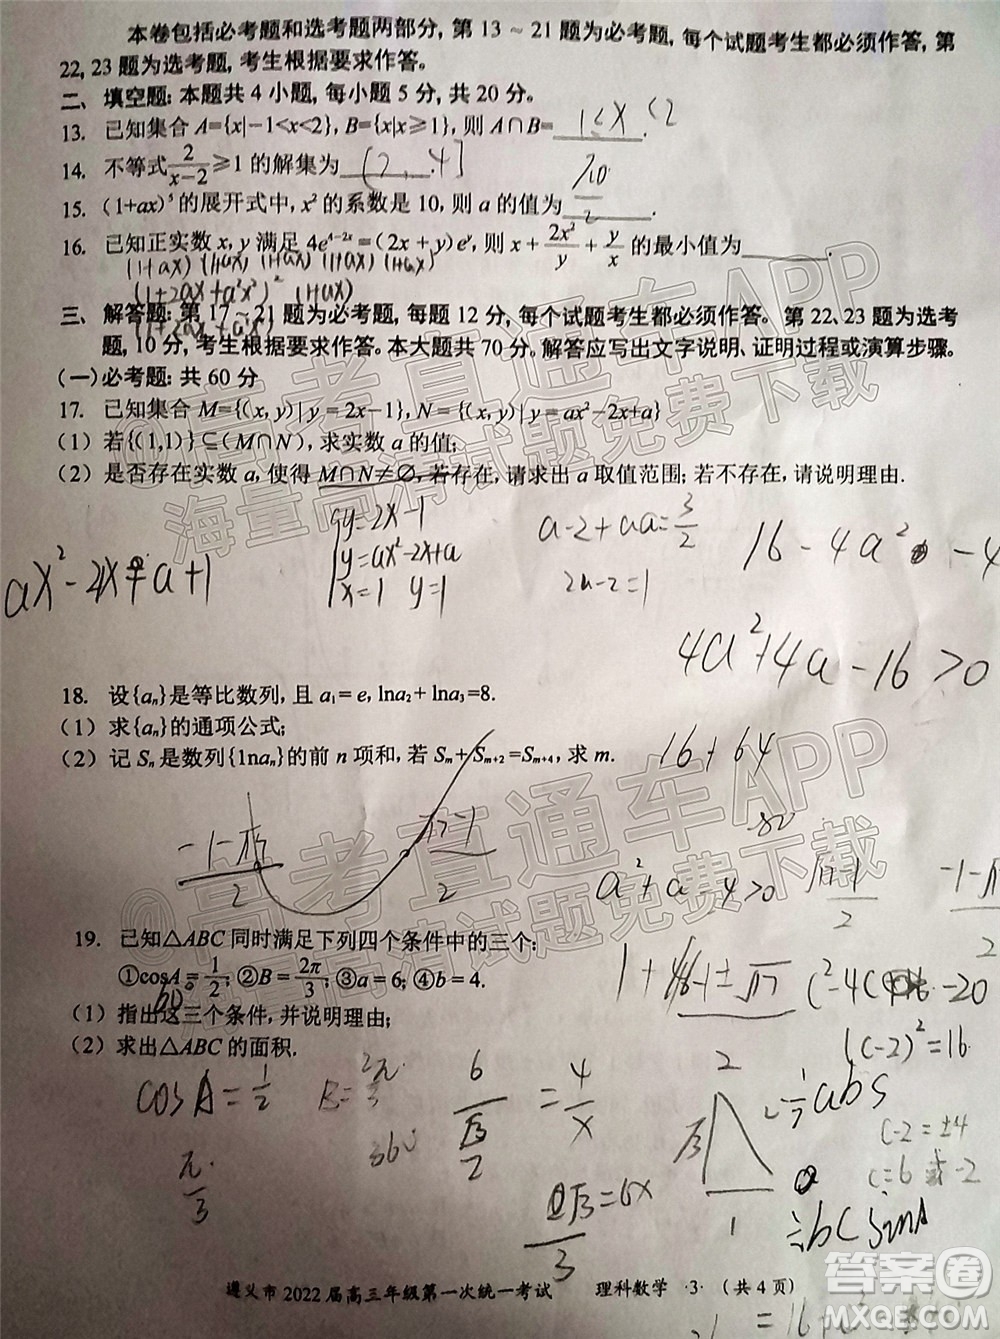 本卷包括必考题和选考题两部分, 第 13 ~ 21 题为必考题, 每个试题考生都必须作答, 第
22, 23 题为选考题, 考生根据要求作答。
二、填空题: 本题共 4 小题, 每小题 5 分, 共 20 分。
13. 已知集合 A={x|−1<x<2}, B={x|x≥1}, 则 A∩B= 1≤x<2
14. 不等式 2/(x−2) ≥1 的解集为 (2, 4] .
15. (1+ax)⁵ 的展开式中, x² 的系数是 10, 则 a 的值为 .
16. 已知正实数 x, y 满足 4e⁴⁻²ˣ=(2x+y)eʸ, 则 x+2x²/y+y/x 的最小值为 .
(1+ax) (1+ax) (1+ax) (1+ax) (1+ax)
(1+2ax+a²x²)² (1+ax)
三、解答题: 第 17~21 题为必考题, 每题 12 分, 每个试题考生都必须作答。第 22、23 题为选考
题, 10 分, 考生根据要求作答。本大题共 70 分。解答应写出文字说明、证明过程或演算步骤。
(一) 必考题: 共 60 分
17. 已知集合 M={(x, y)|y=2x−1}, N={(x, y)|y=ax²−2x+a}
(1) 若{(1,1)}⊆(M∩N), 求实数 a 的值;
(2) 是否存在实数 a, 使得 M∩N≠∅, 若存在, 请求出 a 取值范围; 若不存在, 请说明理由.
y=2x−1
y=ax²−2x+a
x=1 y=1
a−2+a=3/2
2a−2=1
16−4a²
4a²+4a−16>0
18. 设{aₙ}是等比数列, 且 a₁=e, lna₂+lna₃=8.
(1) 求{aₙ}的通项公式;
(2) 记 Sₙ是数列{lnaₙ}的前 n 项和, 若 Sₘ+Sₘ₊₂=Sₘ₊₄, 求 m.
16+64
a²+a−4>0
19. 已知△ABC 同时满足下列四个条件中的三个:
①cosA=1/2; ②B=2π/3; ③a=6; ④b=4.
60
(1) 指出这三个条件, 并说明理由;
(2) 求出△ABC 的面积.
(c−2)²=16
cosA=1/2
B=2π/3
6/(√3/2)=4/x
c−2=±4
c=6 或 −2
π/3
360
½bcsinA
遵义市 2022 届高三年级第一次统一考试 理科数学 ·3· (共 4 页)
@高考直通车APP
海量高清试题免费下载
@高考直通车APP
海量高清试题免费下载
答案圈
MXQE.COM